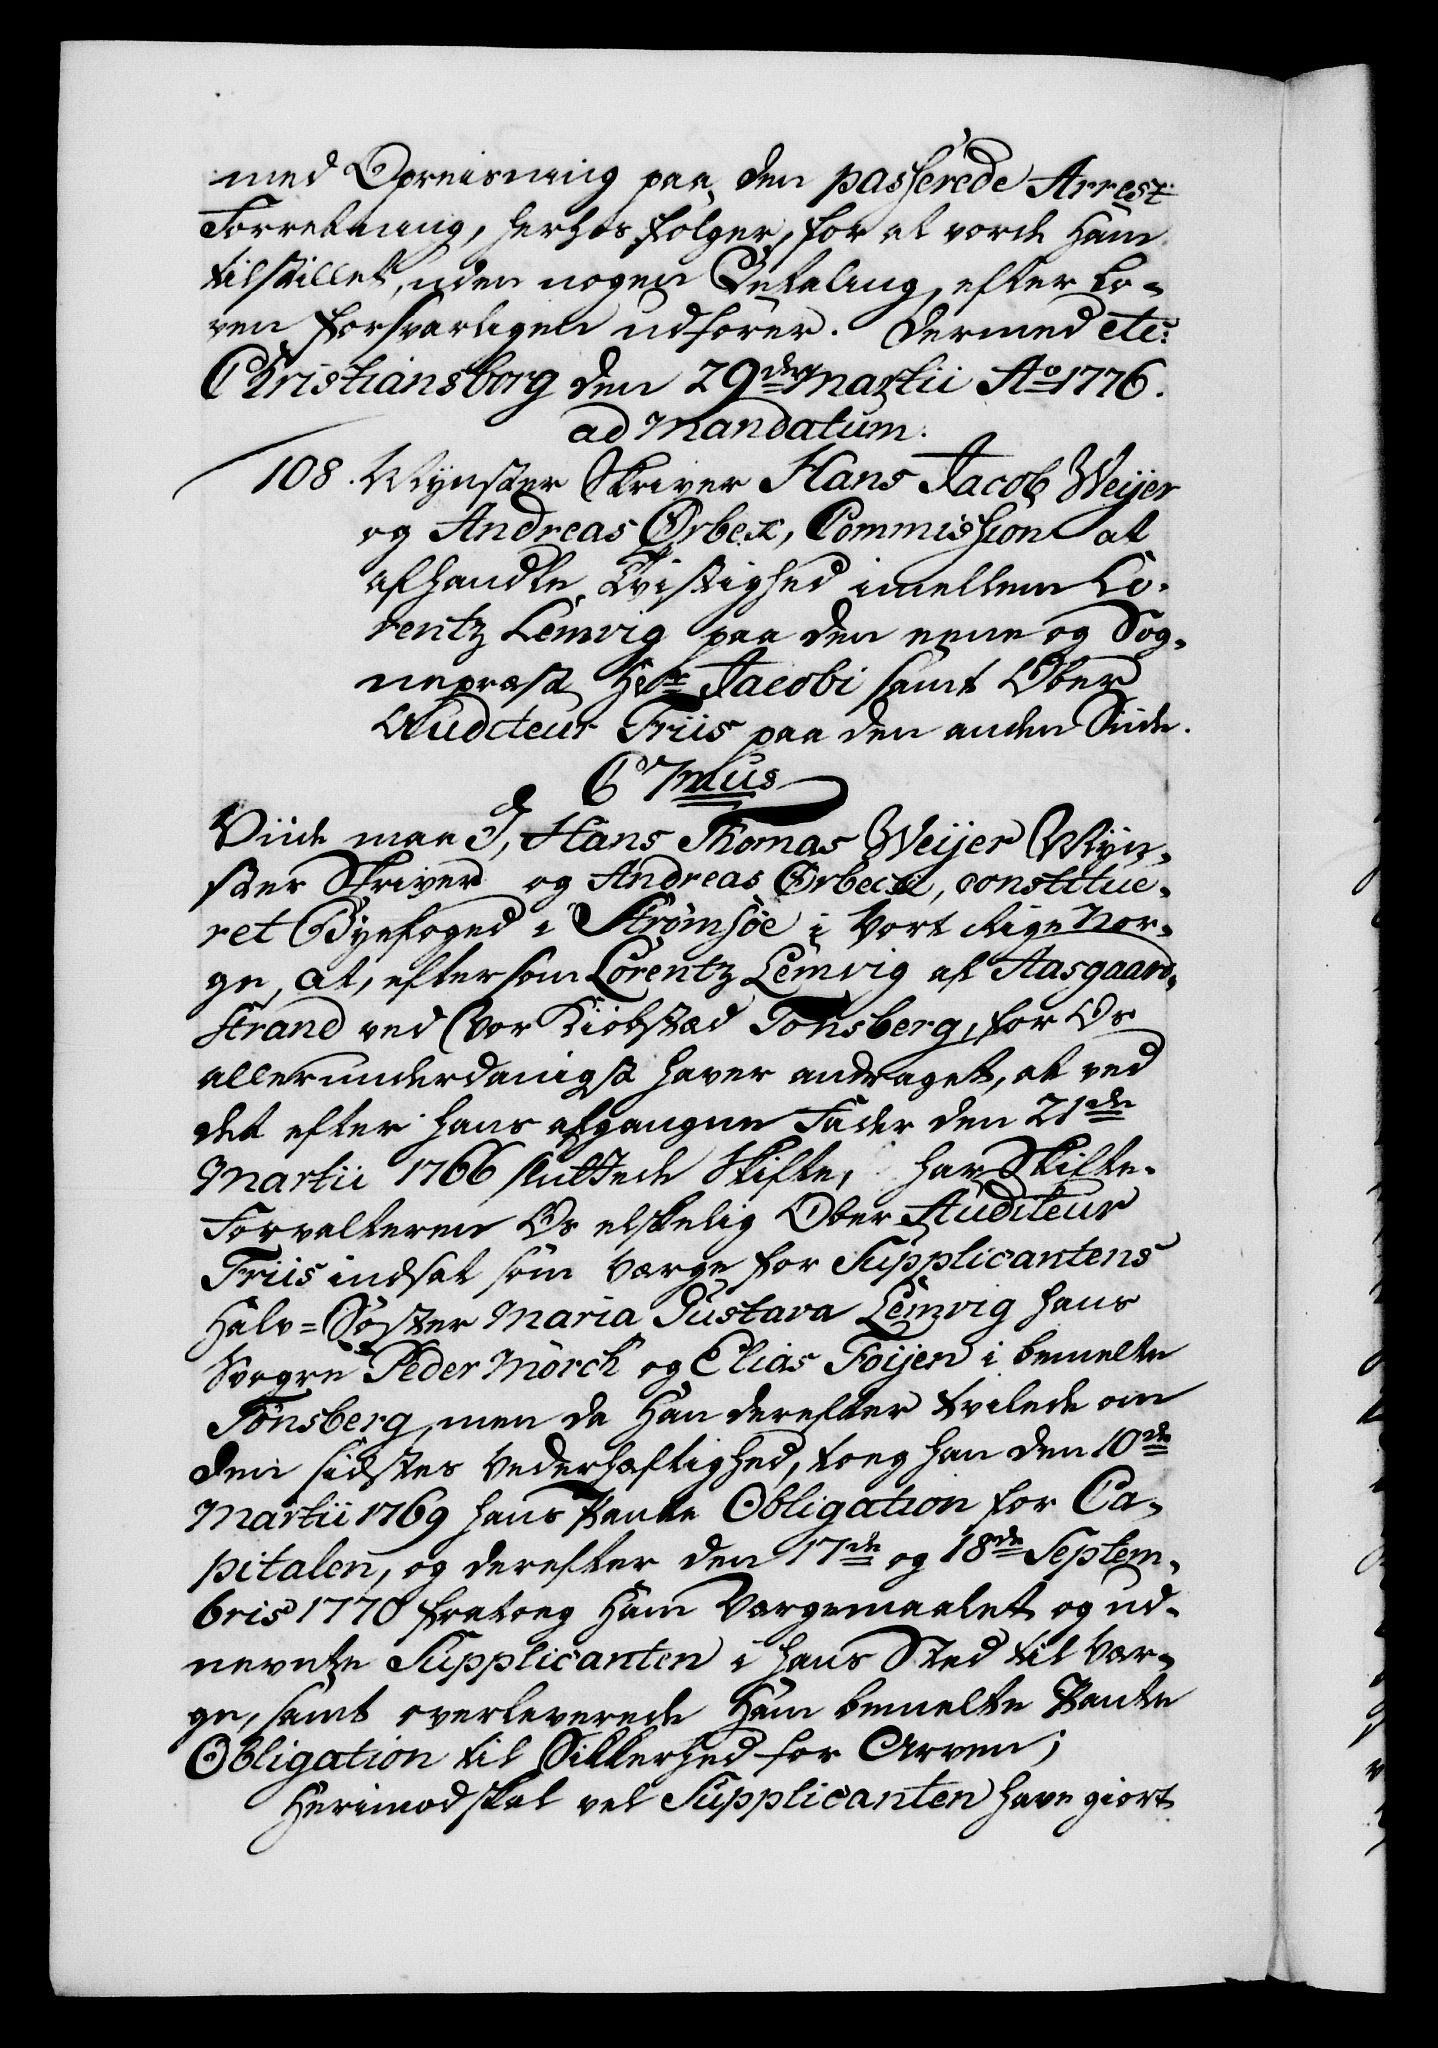 med Opreisning paa den passerede Arrest
Forretning, herhos følger, for at vorde Ham
tilstillet, uden nogen Betaling, efter Lo-
ven forsvarligen udfører. Dermed etc:
Christiansborg den 29de Martii Ao 1776.
ad Mandatum.
108. Mynster Skriver Hans Jacob Weijer
og Andreas Ørbech, Commission at
afhandle Tvistighed imellem Lo-
rentz Lemvig paa den eene og Sog-
nepræst Hr Jacobi samt Ober
Auditeur Friis paa den anden Siide.
C 7mus
Viide maa I, Hans Thomas Weijer Mün-
ster Skriver og Andreas Ørbech, constitue-
ret Byefoged i Strømsøe i Vort Rige Nor-
ge, at, eftersom Lorentz Lemvig af Aasgaard-
strand ved Vor Kiøbstæd Tønsberg, for Os
allerunderdanigst haver andraget, at ved
det efter hans afgangne Fader den 21de
Martii 1766 sluttede Skifte, har Skifte-
Forvalteren Os elskelig Ober Auditeur
Friis indsat som Værge for Supplicantens
Halv=Søster Maria Gustava Lemvig hans
Svogre Peder Mørch og Elias Foijen i bemelte
Tønsberg, men da Han derefter tvilede om
den sidstes Vederhæftighed, toeg han den 10de
Martii 1769 hans Pante Obligation for Ca-
pitalen, og derefter den 17de og 18de Septem-
bris 1770 fratoeg Ham Værgemaalet og ud-
nevnte Supplicanten i hans Sted til Vær-
ge, samt overleverede Ham bemelte Pante
Obligation til Sikkerhed for Arven;
Herimod skal vel Supplicanten have giort